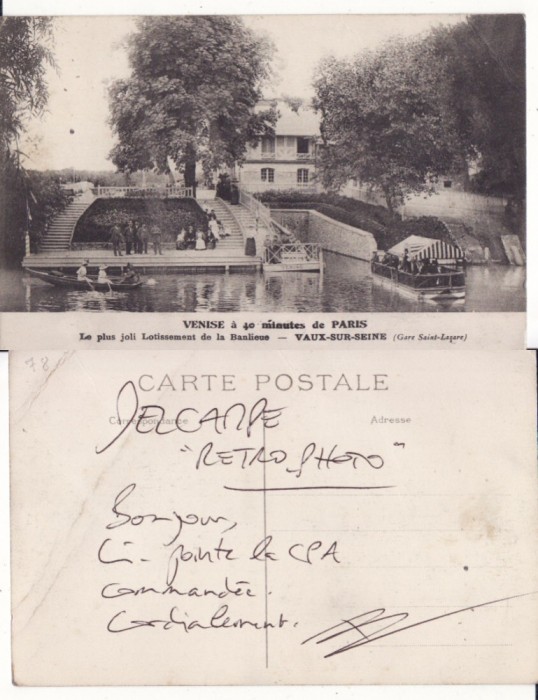 VENISE à 40 minutes de PARIS
Le plus joli Lotissement de la Banlieue — VAUX-SUR-SEINE (Gare Saint-Lazare)
78
CARTE POSTALE
Correspondance Adresse
DELCAMPE
"RETRO PHOTO"
Bonjour,
Ci-jointe la CPA
commandée.
Cordialement.